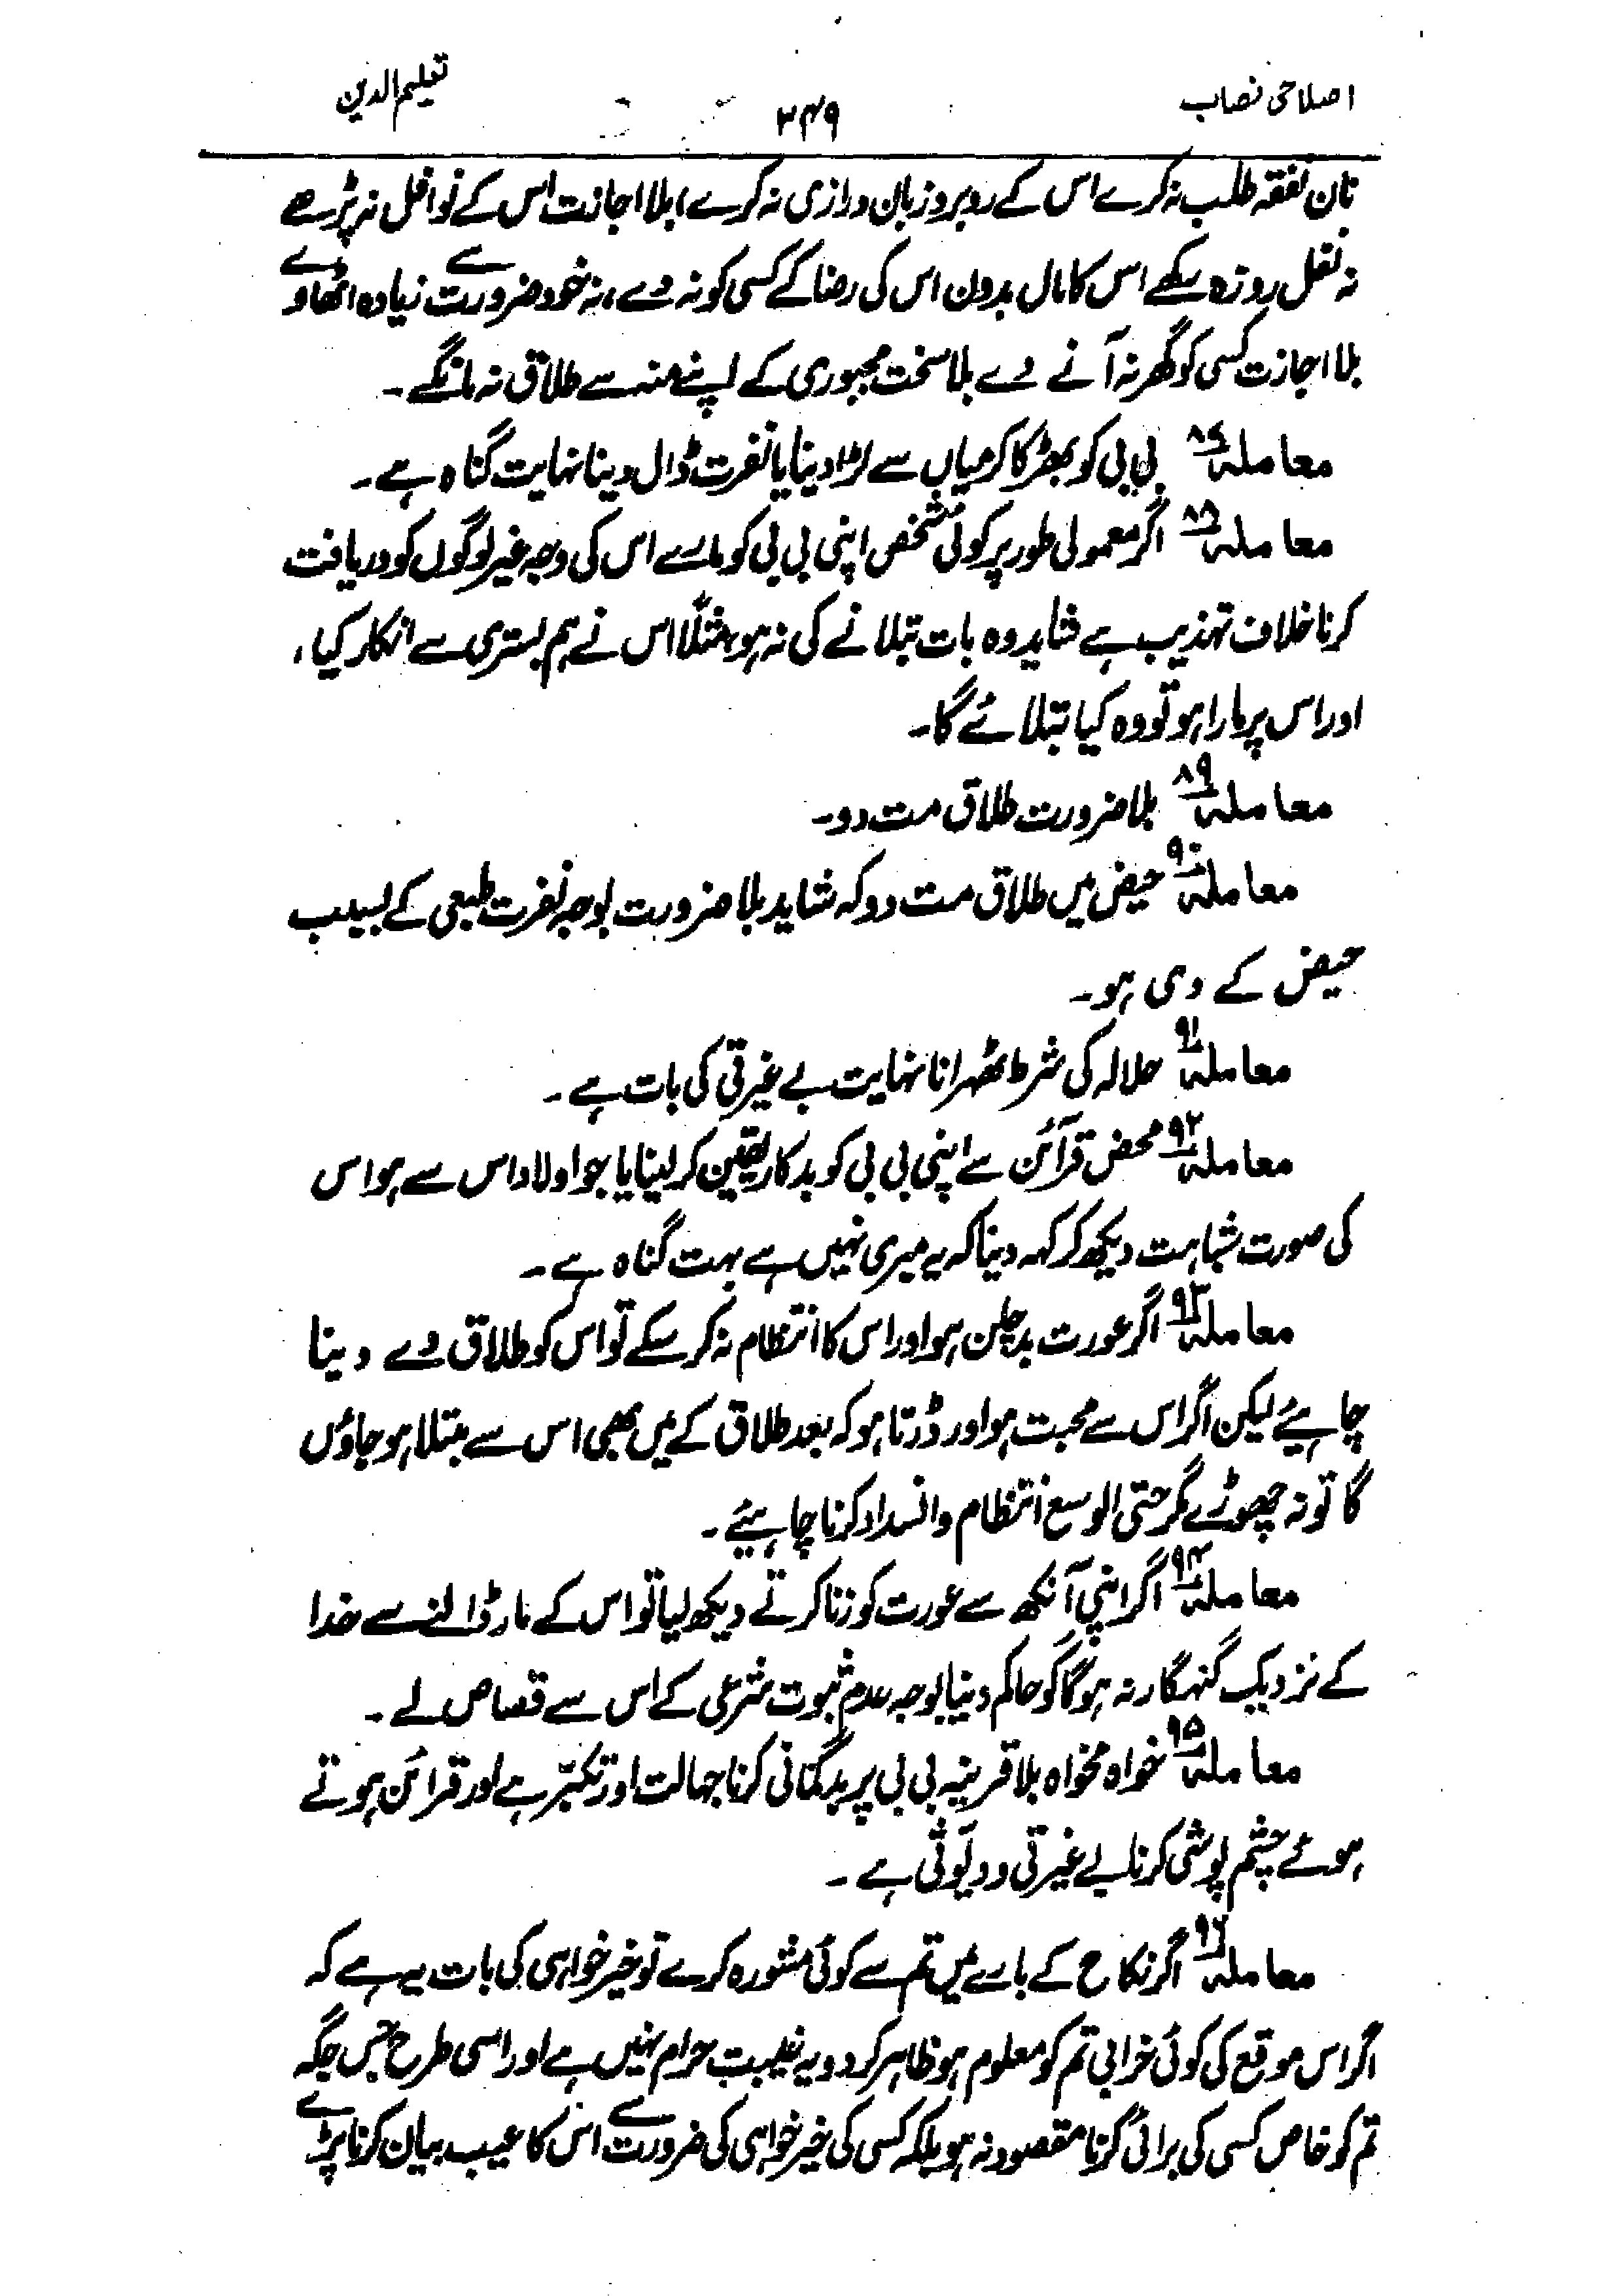 اصلاحی نصاب
۳۴۹
تعلیم الدین
نان نفقہ طلب نہ کرے اس کے روبرو زبان درازی نہ کرے، بلا اجازت اس کے نوافل نہ پڑھے
نہ نفل روزہ رکھے اس کا مال بدون اس کی رضا کے کسی کو نہ دے، نہ خود ضرورت سے زیادہ اٹھاوے
بلا اجازت کسی کو گھر نہ آنے دے بلا سخت مجبوری کے اپنے منہ سے طلاق نہ مانگے۔
معاملہ ۸۷ بی بی کو بھڑکا کر میاں سے لڑا دینا یا نفرت ڈال دینا نہایت گناہ ہے۔
معاملہ ۸۸ اگر معمولی طور پر کوئی شخص اپنی بی بی کو مارے اس کی وجہ غیر لوگوں کو دریافت
کرنا خلاف تہذیب ہے شاید وہ بات بتلانے کی نہ ہو، مثلاً اس نے ہم بستری سے انکار کیا،
اور اس پر مارا ہو تو وہ کیا بتلائے گا۔
معاملہ ۸۹ بلا ضرورت طلاق مت دو۔
معاملہ ۹۰ حیض میں طلاق مت دو کہ شاید بلا ضرورت بوجہ نفرت طبعی کے بسبب
حیض کے دی ہو۔
معاملہ ۹۱ حلالہ کی شرط ٹھہرانا نہایت بے غیرتی کی بات ہے۔
معاملہ ۹۲ محض قرآئن سے اپنی بی بی کو بدکار یقین کر لینا یا جو اولاد اس سے ہو اس
کی صورت شباہت دیکھ کر کہہ دینا کہ یہ میری نہیں ہے بہت گناہ ہے۔
معاملہ ۹۳ اگر عورت بدچلن ہو اور اس کا انتظام نہ کر سکے تو اس کو طلاق دے دینا
چاہیئے لیکن اگر اس سے محبت ہو اور ڈرتا ہو کہ بعد طلاق کے میں بھی اس سے مبتلا ہو جاؤں
گا تو نہ چھوڑے مگر حتی الوسع انتظام و انسداد کرنا چاہیئے۔
معاملہ ۹۴ اگر اپنی آنکھ سے عورت کو زنا کرتے دیکھ لیا تو اس کے مار ڈالنے سے خدا
کے نزدیک گنہگار نہ ہوگا گو حاکم دنیا بوجہ عدم ثبوت شرعی کے اس سے قصاص لے۔
معاملہ ۹۵ خواہ مخواہ بلا قرینہ بی بی پر بدگمانی کرنا جہالت اور تکبّر ہے اور قرائن ہوتے
ہوئے چشم پوشی کرنا بے غیرتی و دیّوثی ہے۔
معاملہ ۹۶ اگر نکاح کے بارے میں تم سے کوئی مشورہ کرے تو خیر خواہی کی بات یہ ہے کہ
اگر اس موقع کی کوئی خرابی تم کو معلوم ہو ظاہر کر دو یہ غیبت حرام نہیں ہے اور اسی طرح جس جگہ
تم کو خاص کسی کی برائی کرنا مقصود نہ ہو بلکہ کسی کی خیر خواہی کی ضرورت سے اس کا عیب بیان کرنا پڑے